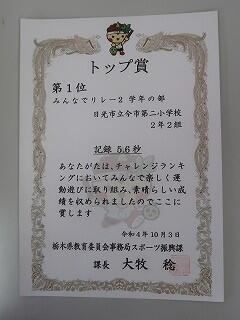 トップ賞
第1位
みんなでリレー2 学年の部
日光市立今市第二小学校
2年2組
記録 5.6秒
あなたがたは、チャレンジランキ
ングにおいてみんなで楽しく運
動遊びに取り組み、素晴らしい成
績を収められましたのでここに
賞します
令和4年10月3日
栃木県教育委員会事務局スポーツ振興課
課長 大牧 稔